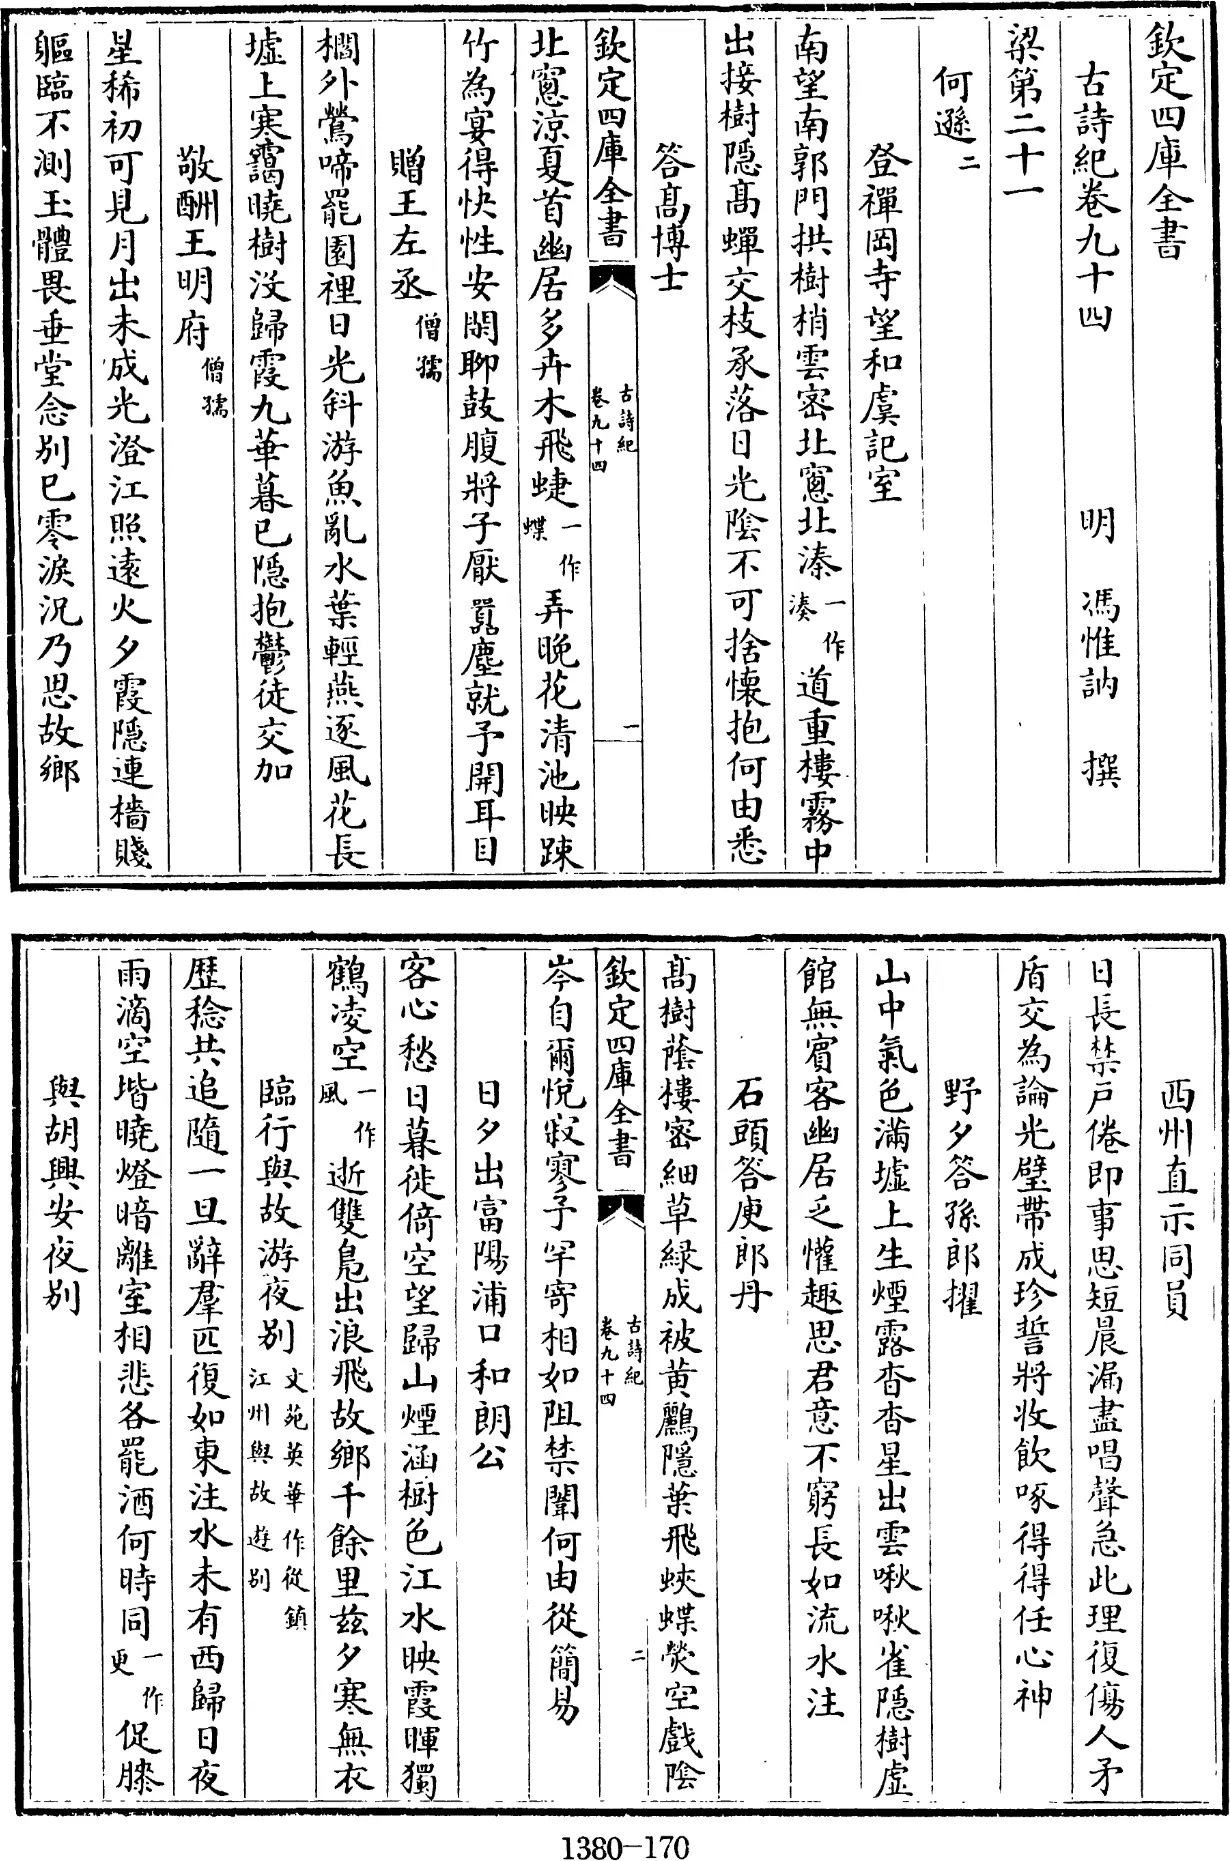 欽定四庫全書
古詩紀卷九十四 明 馮惟訥 撰
梁第二十一
何遜二
登禪岡寺望和虞記室
南望南郭門拱樹梢雲密北窻北溱一作湊道重樓霧中
出接樹隱髙蟬交枝承落日光陰不可捨懷抱何由悉
答髙博士
欽定四庫全書 古詩紀卷九十四 一
北窻涼夏首幽居多卉木飛蜨一作蝶弄晩花清池映踈
竹為宴得快性安閒聊鼓腹將子厭囂塵就予開耳目
贈王左丞僧孺
櫩外鶯啼罷園裡日光斜游魚亂水葉輕燕逐風花長
墟上寒靄曉樹沒歸霞九華暮已隱抱鬱徒交加
敬酬王明府僧孺
星稀初可見月出未成光澄江照逺火夕霞隱連檣賤
軀臨不測玉體畏垂堂念别已零淚況乃思故鄉
西州直示同員
日長禁戶倦即事思短晨漏盡唱聲急此理復傷人矛
盾交為論光璧帶成珍誓將收飲啄得得任心神
野夕答孫郎擢
山中氣色滿墟上生煙露杳杳星出雲啾啾雀隱樹虛
館無賔客幽居乏懽趣思君意不窮長如流水注
石頭答庾郎丹
髙樹蔭樓密細草緑成被黄鸝隱葉飛蛺蝶熒空戲陰
欽定四庫全書 古詩紀卷九十四 二
岑自爾悅寂寥予罕寄相如阻禁闈何由從簡易
日夕出富陽浦口和朗公
客心愁日暮徙倚空望歸山煙涵樹色江水映霞暉獨
鶴凌空一作風逝雙鳬出浪飛故鄉千餘里兹夕寒無衣
臨行與故游夜别文苑英華作從鎮江州與故遊别
歴稔共追隨一旦辭羣匹復如東注水未有西歸日夜
雨滴空堦曉燈暗離室相悲各罷酒何時同一作更促膝
與胡興安夜别
1380-170